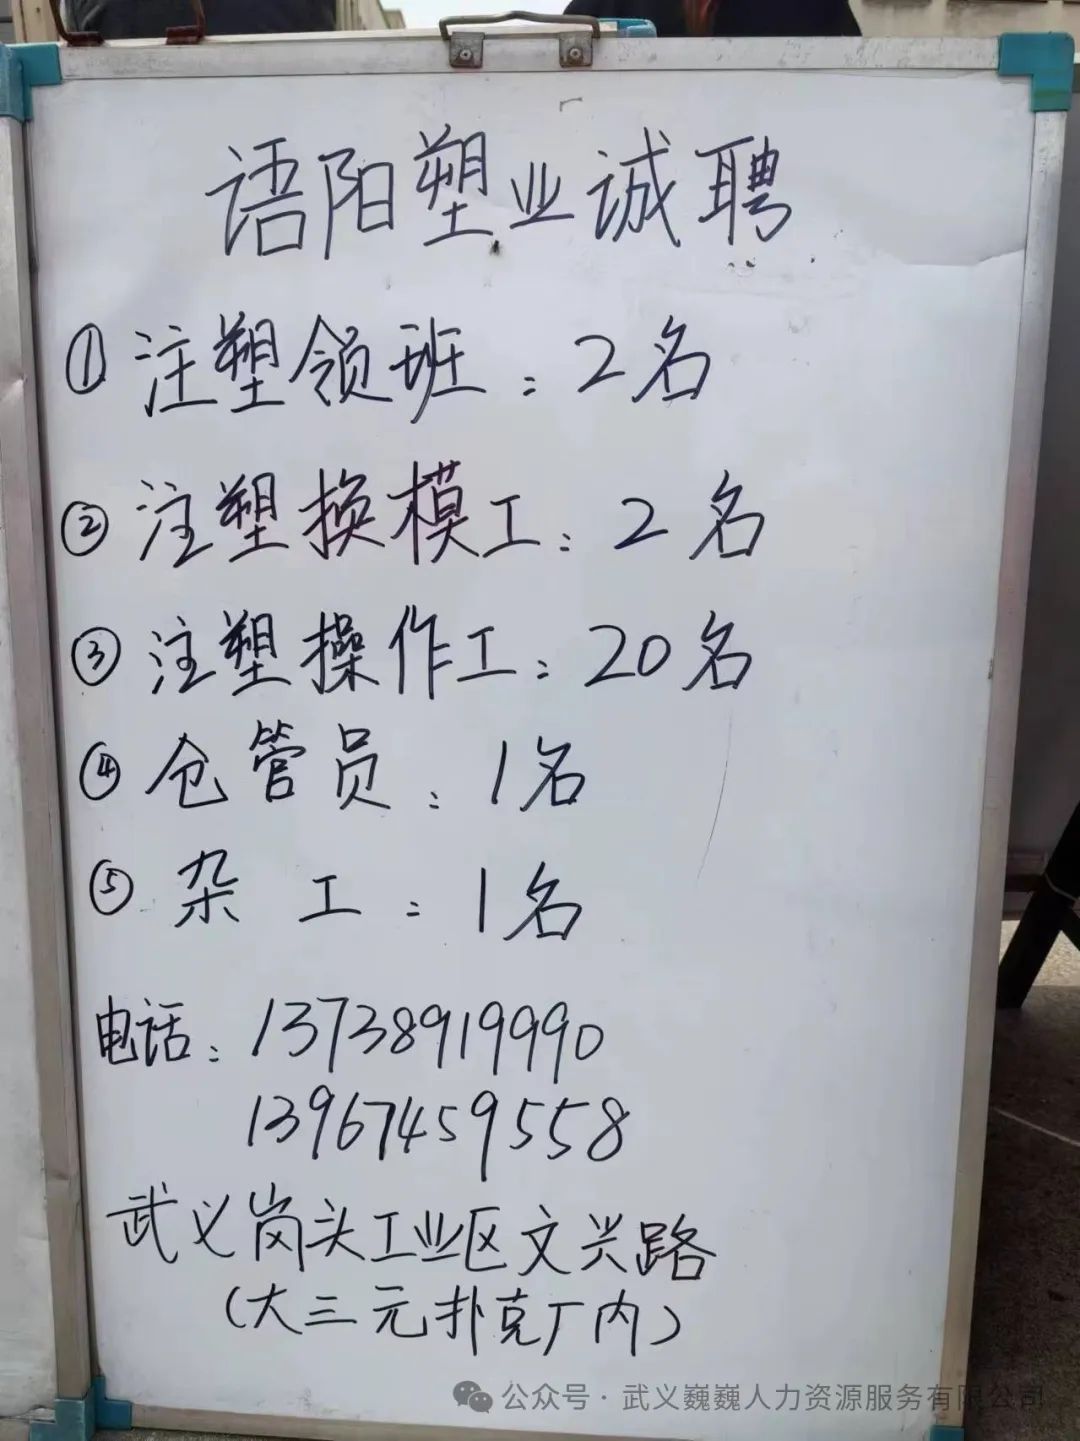 语阳塑业诚聘
①注塑领班：2名
②注塑换模工：2名
③注塑操作工：20名
④仓管员：1名
⑤杂工：1名
电话：13738919990
13967459558
武义岗头工业区文兴路
（大三元扑克厂内）
公众号·武义巍巍人力资源服务有限公司